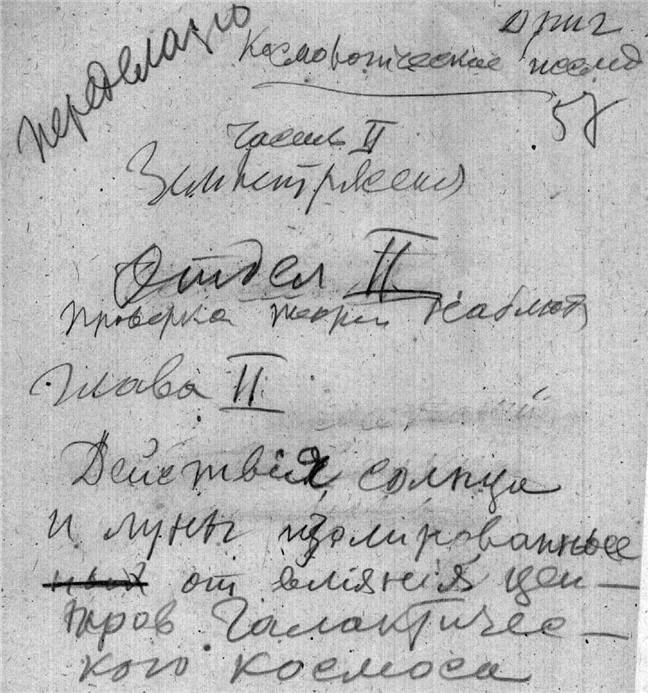 переделано
ориг
Космологические исслед
58
Часть II
Землетрясения
Отдел II
проверка теорий наблюд
Глава II
Действия солнца
и луны изолированные
ных от влияния цен–
тров Галактичес–
кого космоса